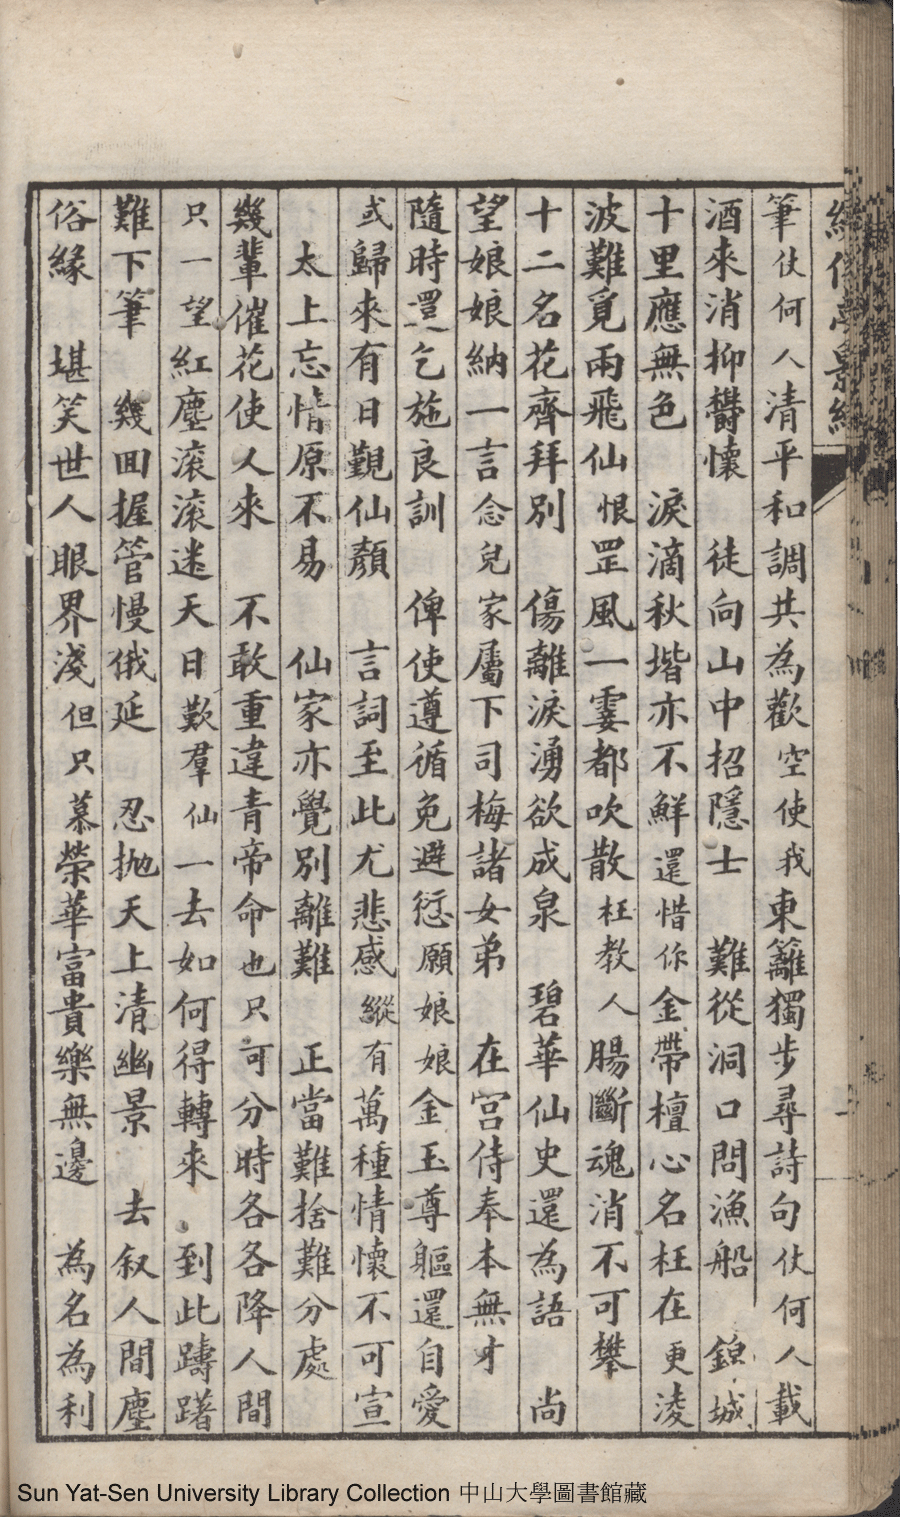 筆仗何人清平和調共為歡空使我東籬獨步尋詩句仗何人載
酒來消抑鬱懷　徒向山中招隱士　難從洞口問漁船　錦城
十里應無色　淚滴秋堦亦不鮮還惜你金帶檀心名枉在更凌
波難覓兩飛仙恨罡風一霎都吹散枉教人腸斷魂消不可攀
十二名花齊拜別　傷離淚湧欲成泉　碧華仙史還為語　尚
望娘娘納一言念兒家屬下司梅諸女弟　在宮侍奉本無才
隨時還乞施良訓　俾使遵循免避愆願娘娘金玉尊軀還自愛
或歸來有日覲仙顏　言詞至此尤悲感縱有萬種情懷不可宣
太上忘情原不易　仙家亦覺別離難　正當難捨難分處
幾輩催花使人來　不敢重違青帝命也只可分時各各降人間
只一望紅塵滾滾迷天日歎羣仙一去如何得轉來　到此躊躇
難下筆　幾回握管慢俄延　忍拋天上清幽景　去叙人間塵
俗緣　堪笑世人眼界淺但只慕榮華富貴樂無邊　為名為利
Sun Yat-Sen University Library Collection 中山大學圖書館藏